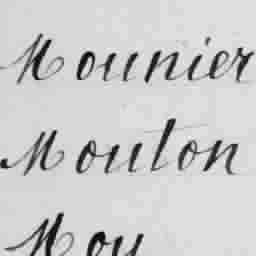 Mounier
Mouton
Moy